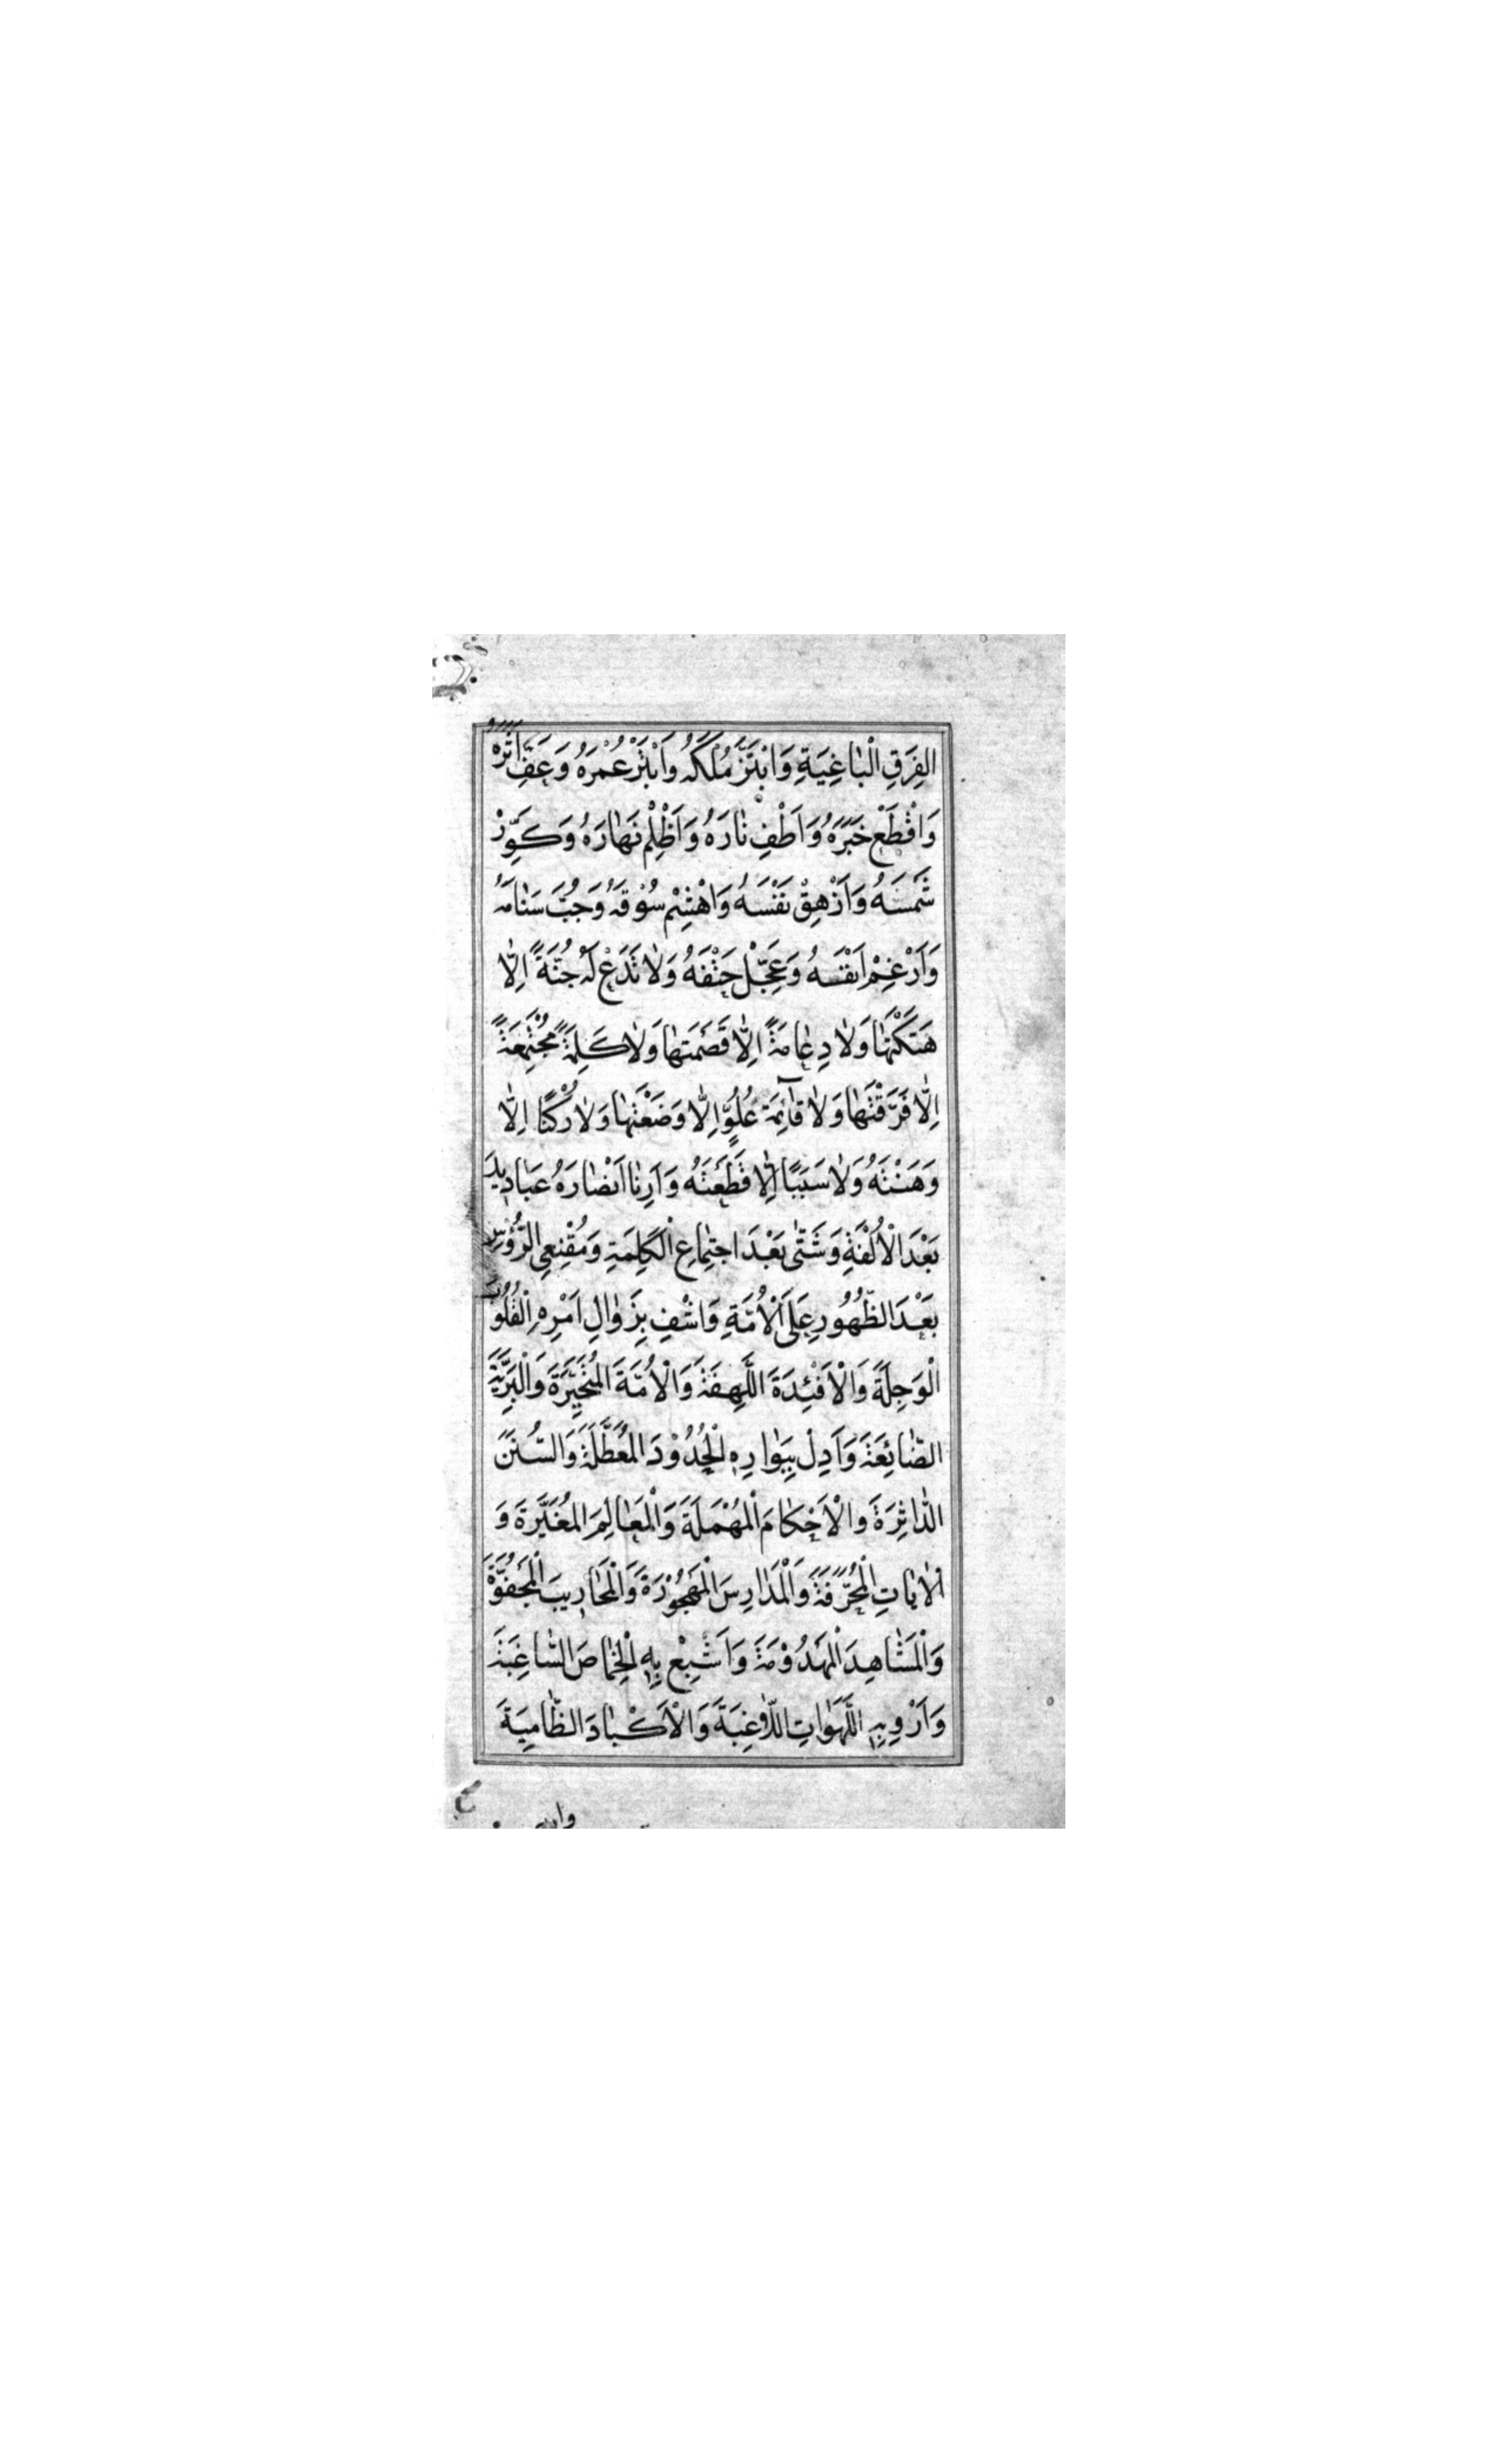 الفِرَقِ الْبَاغِيَةِ وَابْتَزَّ مُلْكَهُ وَابْتَزَّ عُمْرَهُ وَعَفِّ اَثَرَهُ
وَاقْطَعْ خَبَرَهُ وَاَطْفِ نَارَهُ وَاَظْلِمْ نَهَارَهُ وَكَوِّرْ
شَمْسَهُ وَاَزْهِقْ نَفْسَهُ وَاهْشِمْ سُوْقَهُ وَجُبَّ سَنَامَهُ
وَاَرْغِمْ اَنْفَسَهُ وَعَجِّلْ حَتْفَهُ وَلَا تَدَعْ لَهُ جُنَّةً اِلَّا
هَتَكْتَهَا وَلَا دِعَامَةً اِلَّا قَصَمْتَهَا وَلَا كَلِمَةً مُجْتَمِعَةً
اِلَّا فَرَّقْتَهَا وَلَا قَآئِمَةَ عُلُوٍّ اِلَّا وَضَعْتَهَا وَلَا رُكْنًا اِلَّا
وَهَنْتَهُ وَلَا سَبَبًا اِلَّا قَطَعْتَهُ وَاَرِنَا اَنْصَارَهُ عَبَادِيدَ
بَعْدَ الْاُلْفَةِ وَشَتّٰى بَعْدَ اجْتِمَاعِ الْكَلِمَةِ وَمُقْنِعِي الرُّؤُسِ
بَعْدَ الظُّهُورِ عَلَى الْاُمَّةِ وَاشْفِ بِزَوَالِ اَمْرِهِ الْقُلُوبَ
الْوَجِلَةَ وَالْاَفْئِدَةَ اللَّهِفَةَ وَالْاُمَّةَ الْمُتَحَيِّرَةَ وَالْبَرِيَّةَ
الضَّائِعَةَ وَاَدِلْ بِبَوَارِهِ الْحُدُوْدَ الْمُعَطَّلَةَ وَالسُّنَنَ
الدَّاثِرَةَ وَالْاَحْكَامَ الْمُهْمَلَةَ وَالْمَعَالِمَ الْمُغَيَّرَةَ وَ
الْاٰيَاتِ الْمُحَرَّفَةَ وَالْمَدَارِسَ الْمَهْجُوْرَةَ وَالْمَحَارِيبَ الْمَجْفُوَّةَ
وَالْمَشَاهِدَ الْمَهْدُوْمَةَ وَاَشْبِعْ بِهِ الْخِمَاصَ السَّاغِبَةَ
وَاَرْوِ بِهِ اللَّهَوَاتِ اللَّاغِبَةَ وَالْاَكْبَادَ الظَّامِيَةَ